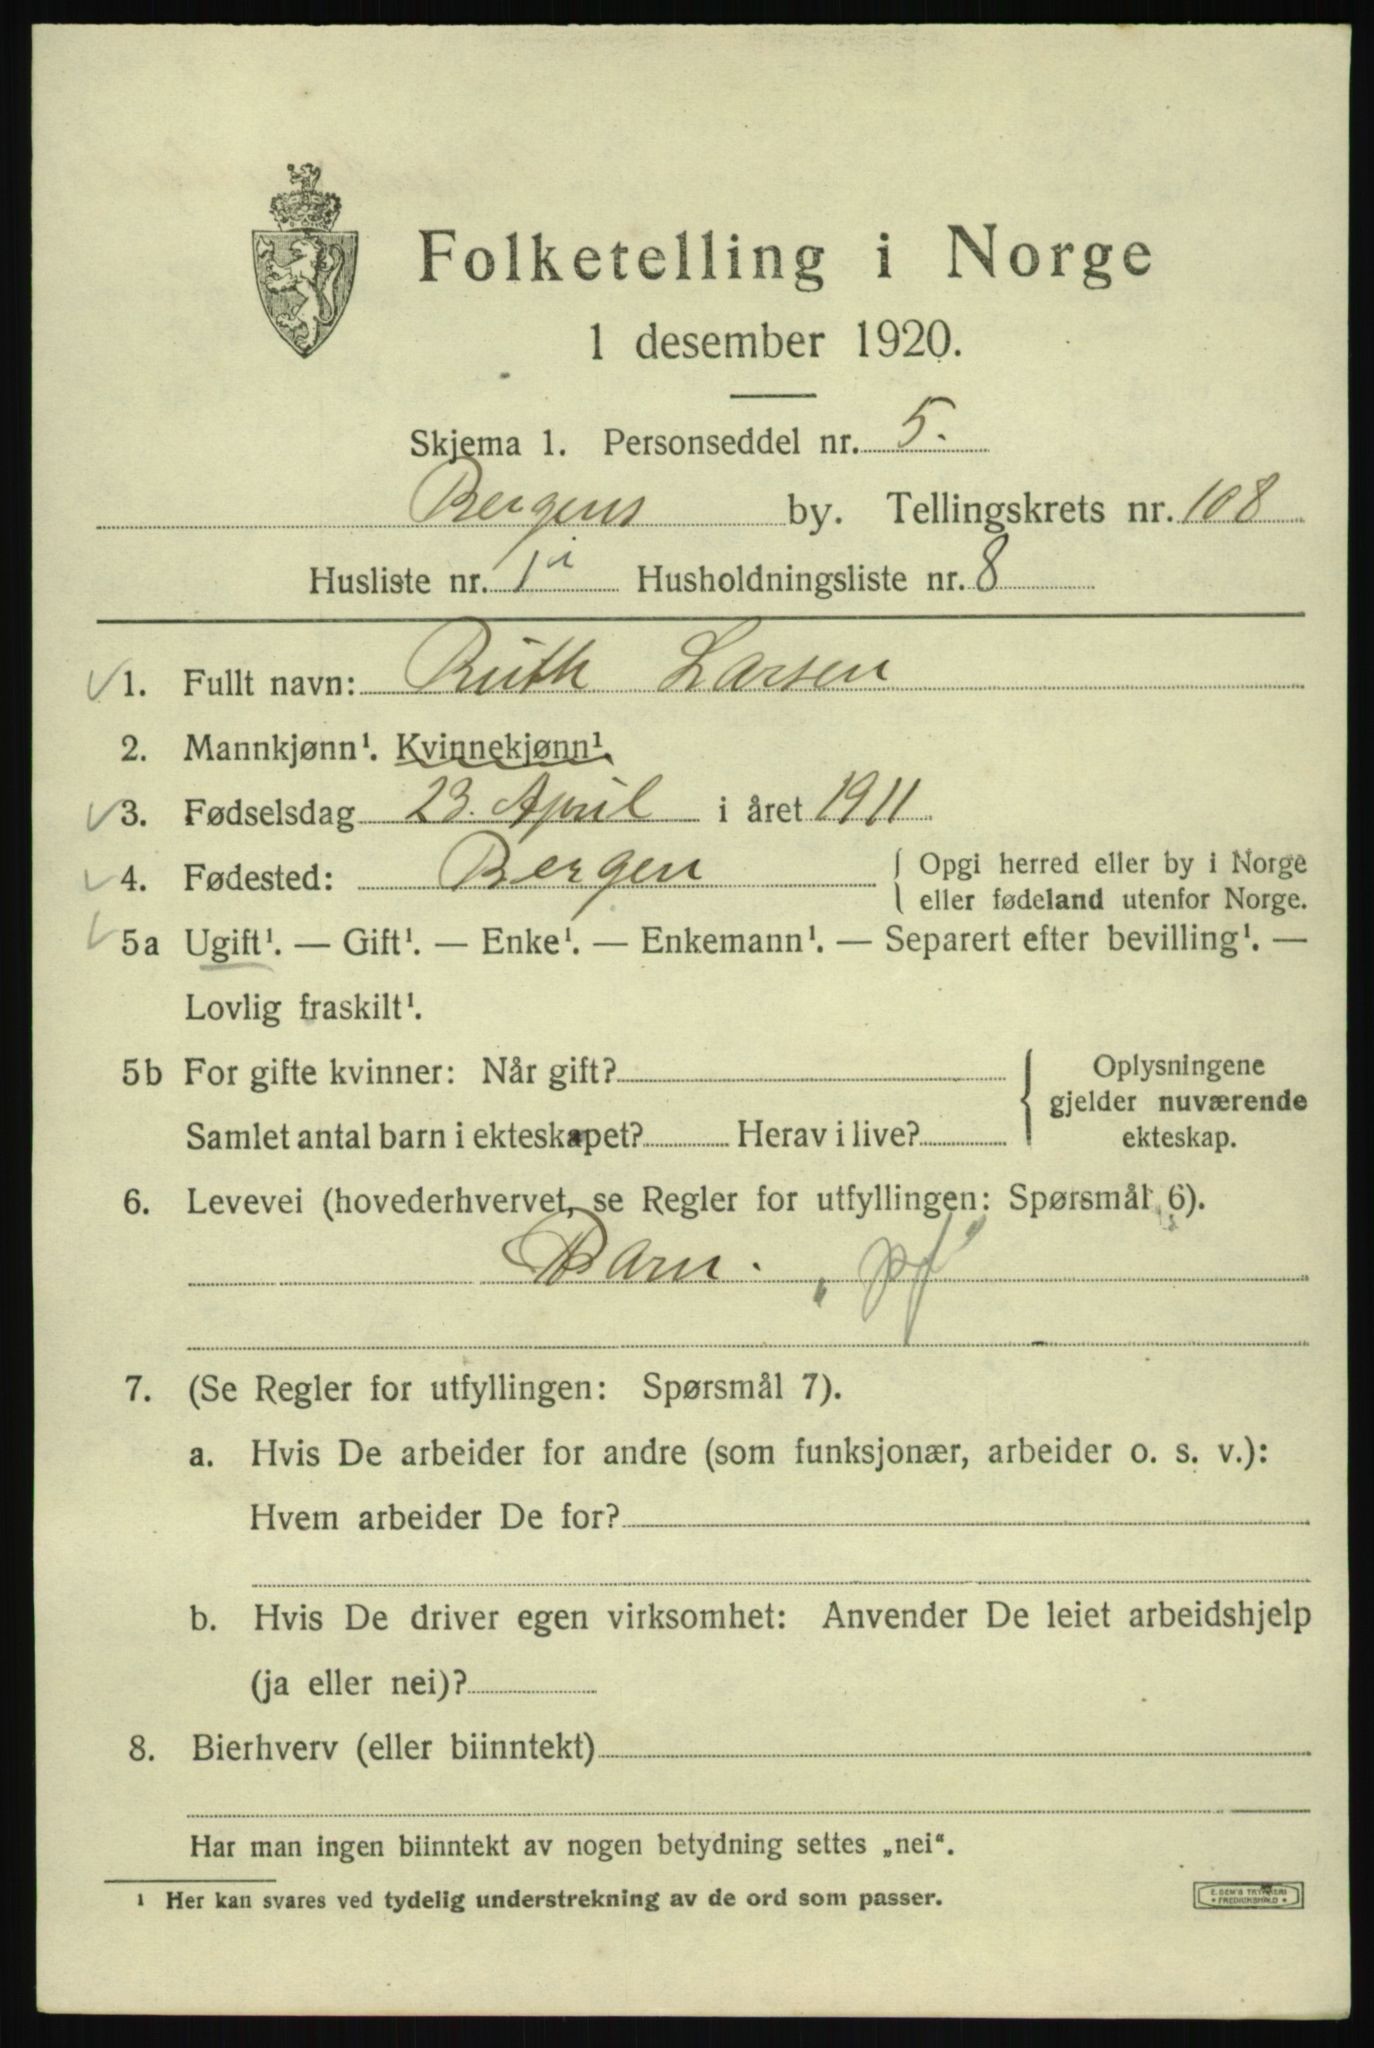 Folketelling i Norge
1 desember 1920.
Skjema 1. Personseddel nr. 5.
Bergens by. Tellingskrets nr. 108
Husliste nr. 1 Husholdningsliste nr. 8
1. Fullt navn: Ruth Larsen
2. Mannkjønn¹. Kvinnekjønn¹.
3. Fødselsdag 23. April i året 1911
4. Fødested: Bergen { Opgi herred eller by i Norge
eller fødeland utenfor Norge.
5a Ugift¹. — Gift¹. — Enke¹. — Enkemann¹. — Separert efter bevilling¹. —
Lovlig fraskilt¹.
5b For gifte kvinner: Når gift? { Oplysningene
gjelder nuværende
Samlet antal barn i ekteskapet? Herav i live? ekteskap.
6. Levevei (hovederhvervet, se Regler for utfyllingen: Spørsmål 6).
Barn.
7. (Se Regler for utfyllingen: Spørsmål 7).
a. Hvis De arbeider for andre (som funksjonær, arbeider o. s. v.):
Hvem arbeider De for?
b. Hvis De driver egen virksomhet: Anvender De leiet arbeidshjelp
(ja eller nei)?
8. Bierhverv (eller biinntekt)
Har man ingen biinntekt av nogen betydning settes „nei“.
¹ Her kan svares ved tydelig understrekning av de ord som passer.